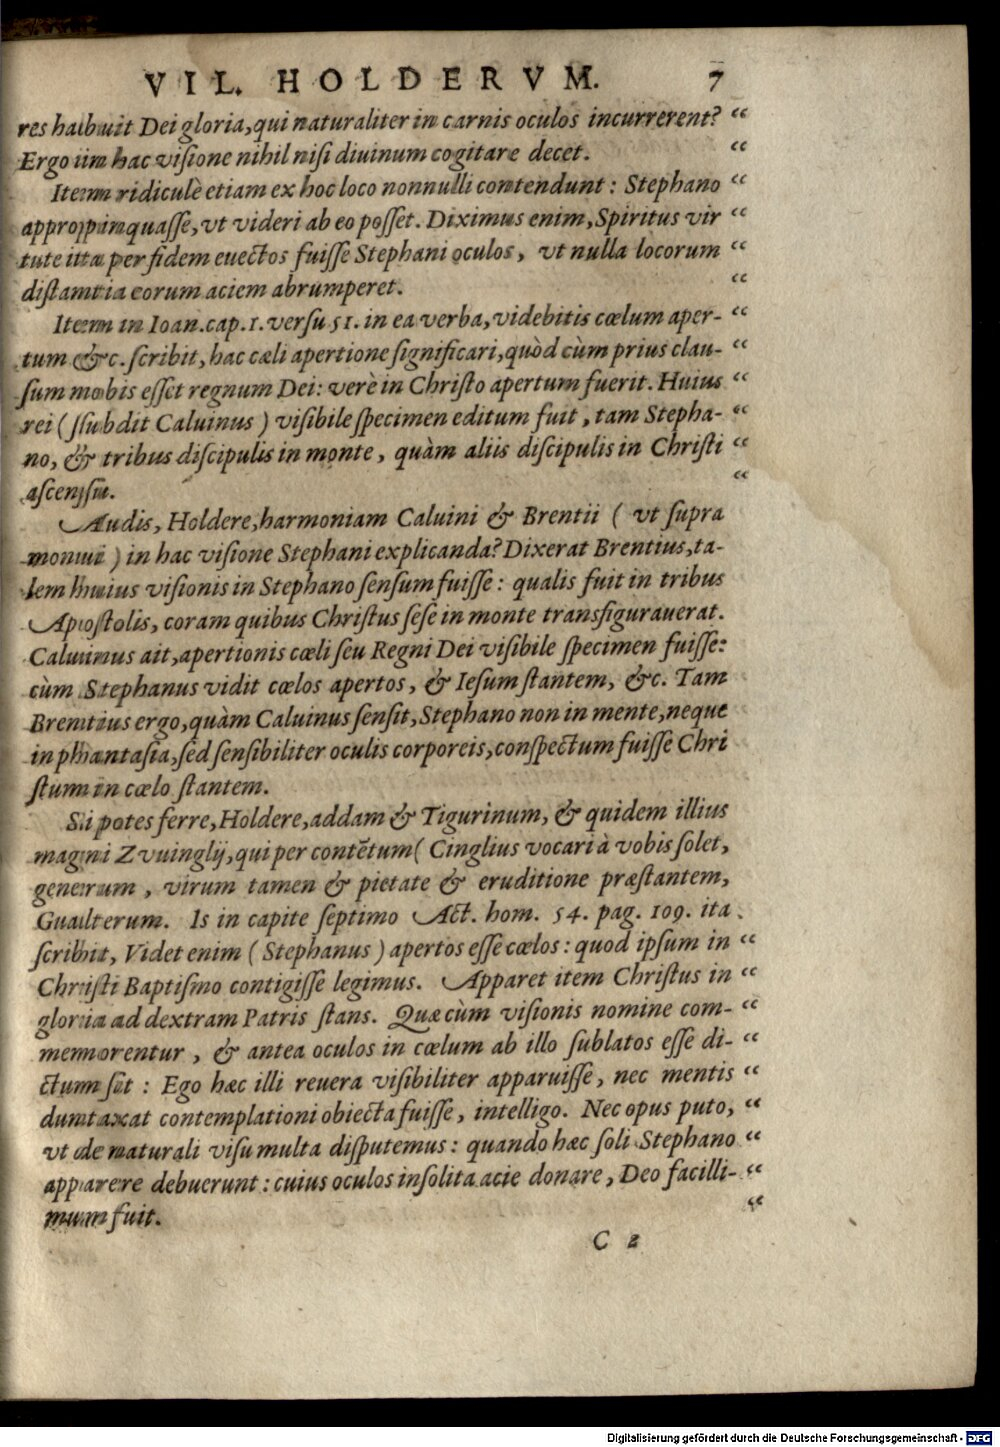 VIL. HOLDERVM. 7
res habuit Dei gloria, qui naturaliter in carnis oculos incurrerent? “
Ergo in hac visione nihil nisi diuinum cogitare decet. “
Item ridiculè etiam ex hoc loco nonnulli contendunt: Stephano “
appropinquasse, vt videri ab eo posset. Diximus enim, Spiritus vir “
tute ita per fidem euectos fuisse Stephani oculos, vt nulla locorum “
distantia eorum aciem abrumperet. “
Item in Ioan. cap. 1. versu 51. in ea verba, videbitis cœlum aper- “
tum &c. scribit, hac cæli apertione significari, quòd cùm prius clau- “
sum nobis esset regnum Dei: verè in Christo apertum fuerit. Huius “
rei (subdit Caluinus) visibile specimen editum fuit, tam Stepha- “
no, & tribus discipulis in monte, quàm aliis discipulis in Christi “
ascensu. “
Audis, Holdere, harmoniam Caluini & Brentii (vt supra
monui) in hac visione Stephani explicanda? Dixerat Brentius, ta-
lem huius visionis in Stephano sensum fuisse: qualis fuit in tribus
Apostolis, coram quibus Christus sese in monte transfigurauerat.
Caluinus ait, apertionis cæli seu Regni Dei visibile specimen fuisse:
cùm Stephanus vidit cœlos apertos, & Iesum stantem, &c. Tam
Brentius ergo, quàm Caluinus sensit, Stephano non in mente, neque
in phantasia, sed sensibiliter oculis corporeis, conspectum fuisse Chri
stum in cœlo stantem.
Si potes ferre, Holdere, addam & Tigurinum, & quidem illius
magni Zvuinglij, qui per contẽtum (Cinglius vocari à vobis solet,
generum, virum tamen & pietate & eruditione præstantem,
Gualterum. Is in capite septimo Act. hom. 54. pag. 109. ita
scribit, Videt enim (Stephanus) apertos esse cœlos: quod ipsum in “
Christi Baptismo contigisse legimus. Apparet item Christus in “
gloria ad dextram Patris stans. Quæ cùm visionis nomine com- “
memorentur, & antea oculos in cœlum ab illo sublatos esse di- “
ctum sit: Ego hæc illi reuera visibiliter apparuisse, nec mentis “
duntaxat contemplationi obiecta fuisse, intelligo. Nec opus puto, “
vt de naturali visu multa disputemus: quando hæc soli Stephano “
apparere debuerunt: cuius oculos insolita acie donare, Deo facilli- “
mum fuit. “
C 2
Digitalisierung gefördert durch die Deutsche Forschungsgemeinschaft - DFG